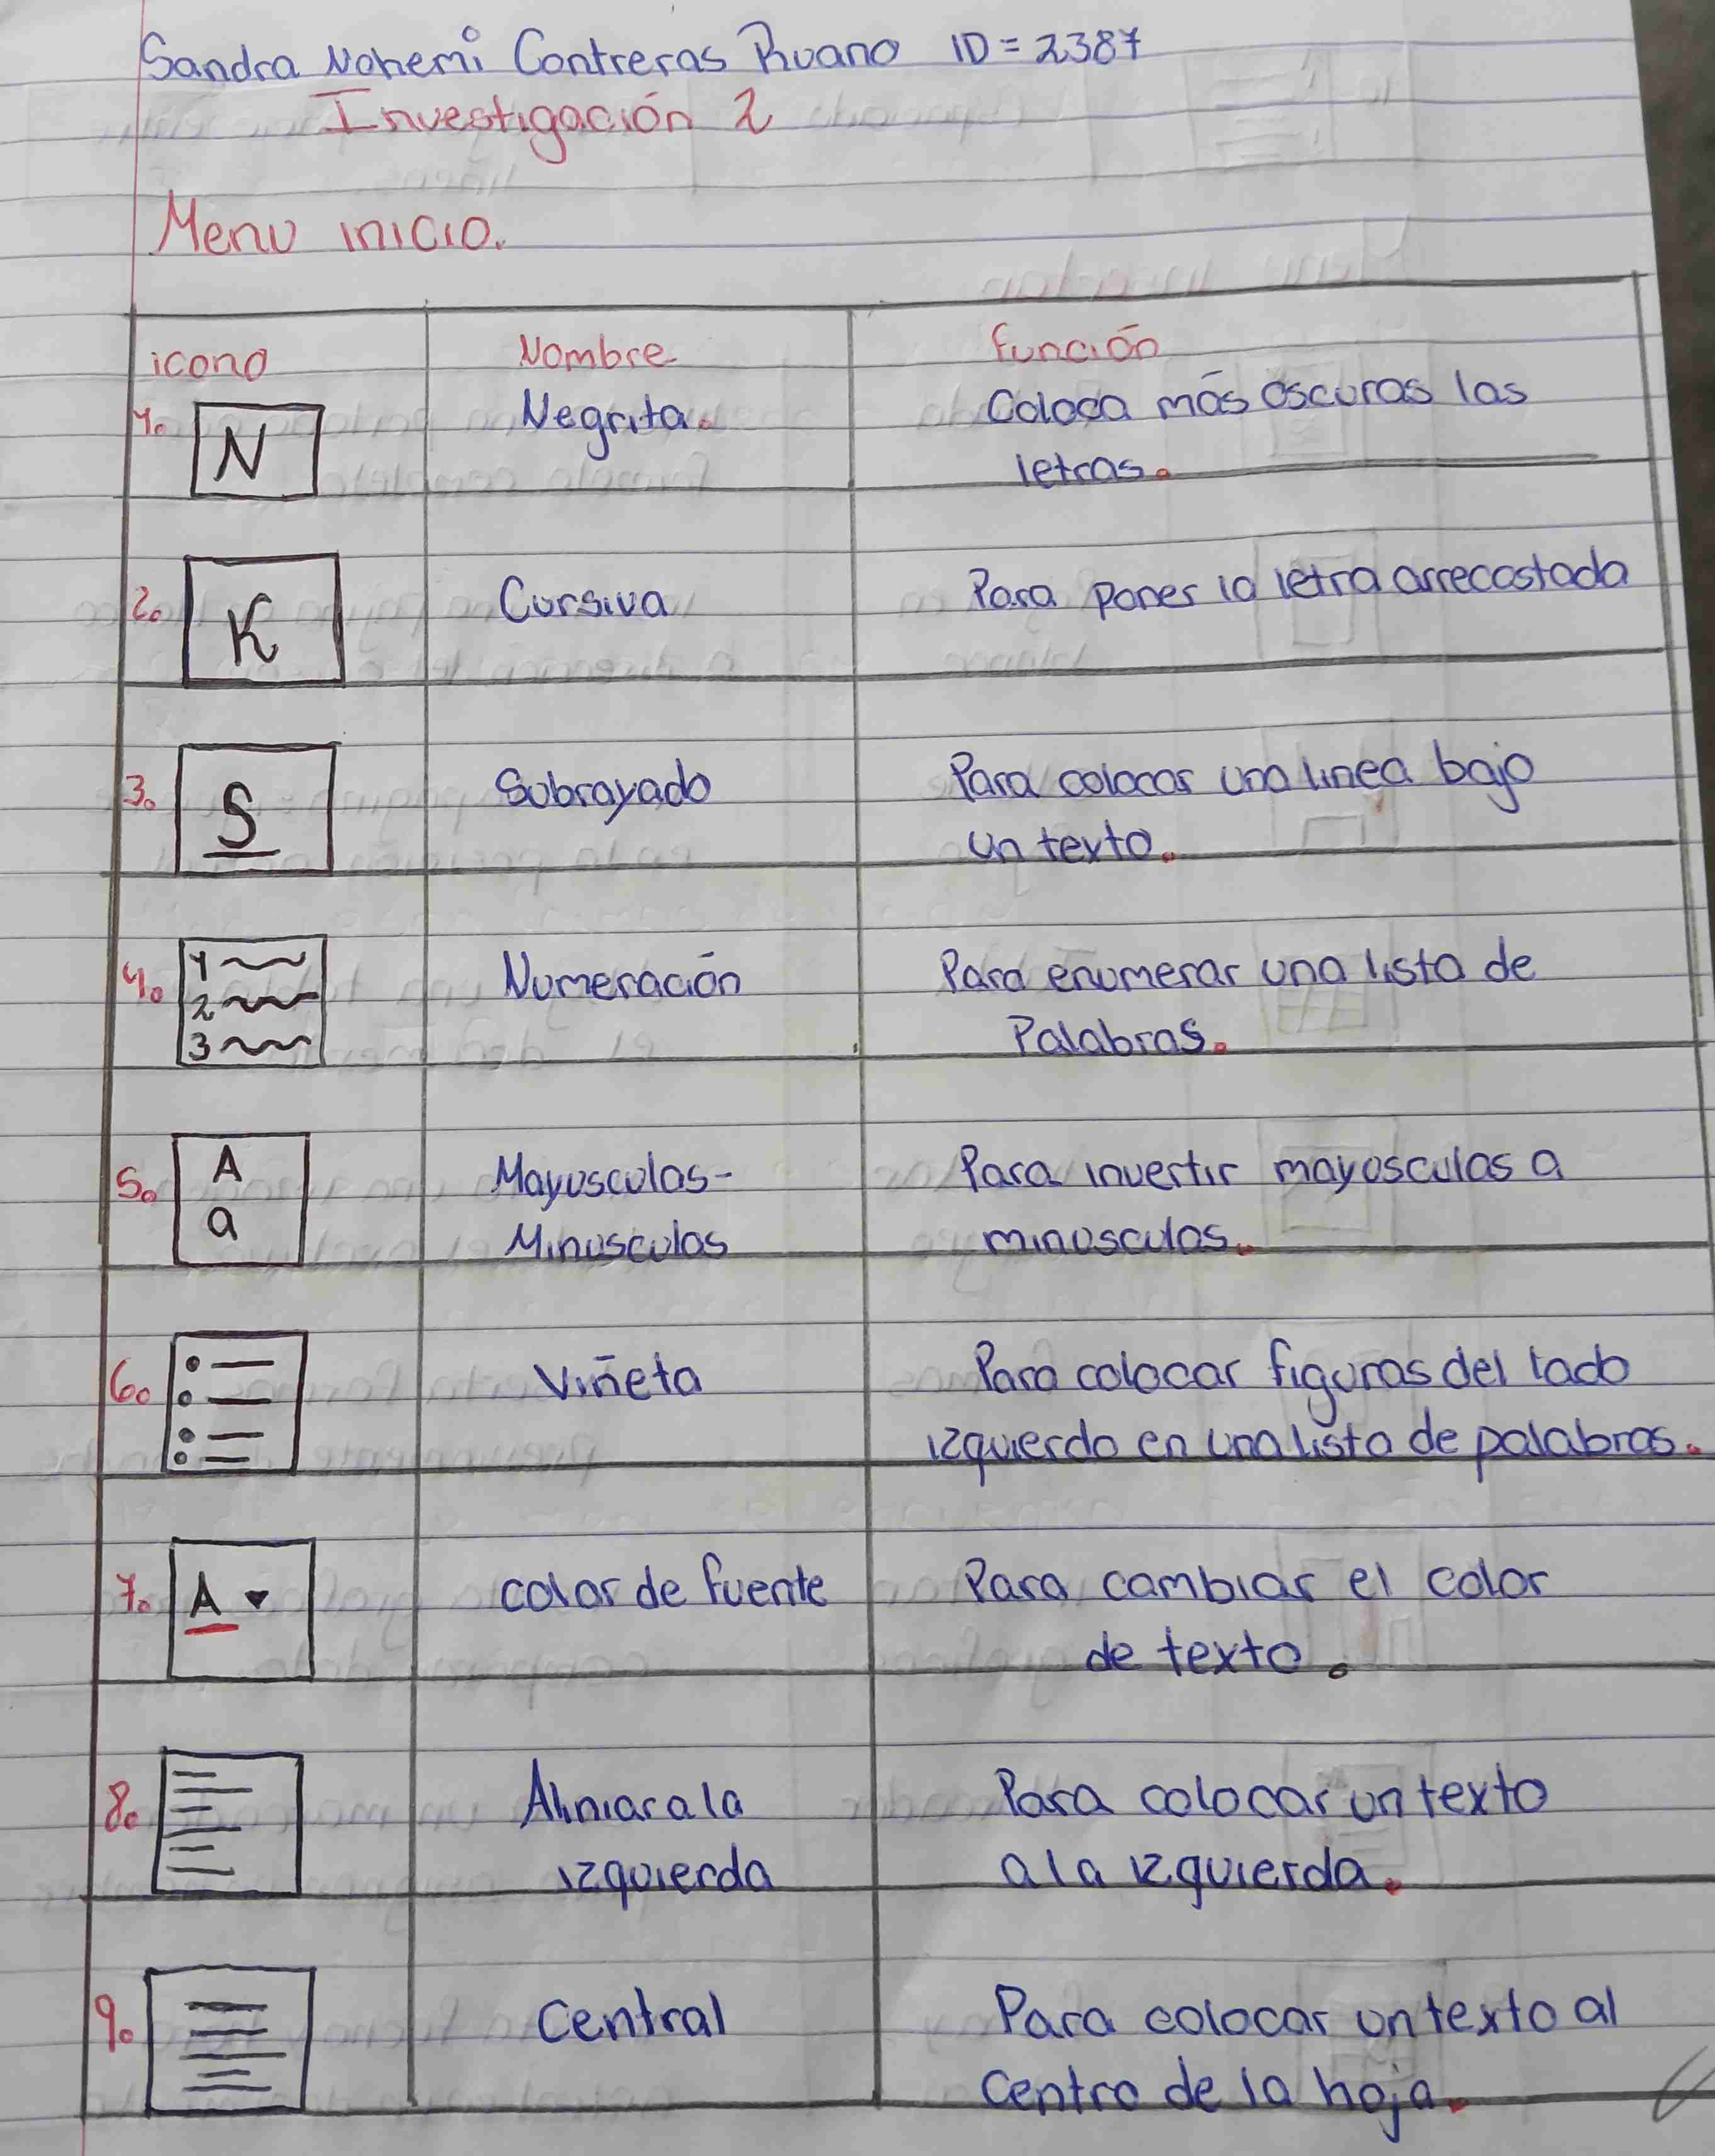 Sandra Nohemi Contreras Ruano ID = 2387
Investigación 2
Menu inicio.
icono Nombre función
1. N Negrita. Coloca más oscuras las
letras.
2. K Cursiva Para poner la letra arrecostada
3. S Subrayado Para colocar una linea bajo
un texto.
4. 1 2 3 Numeración Para enumerar una lista de
Palabras.
5. A a Mayusculas- Para invertir mayusculas a
Minusculas minusculas.
6. viñeta Para colocar figuras del lado
izquierdo en una lista de palabras.
7. A color de fuente Para cambiar el color
de texto.
8. Alniar a la Para colocar un texto
izquierda a la izquierda.
9. Central Para colocar un texto al
Centro de la hoja.